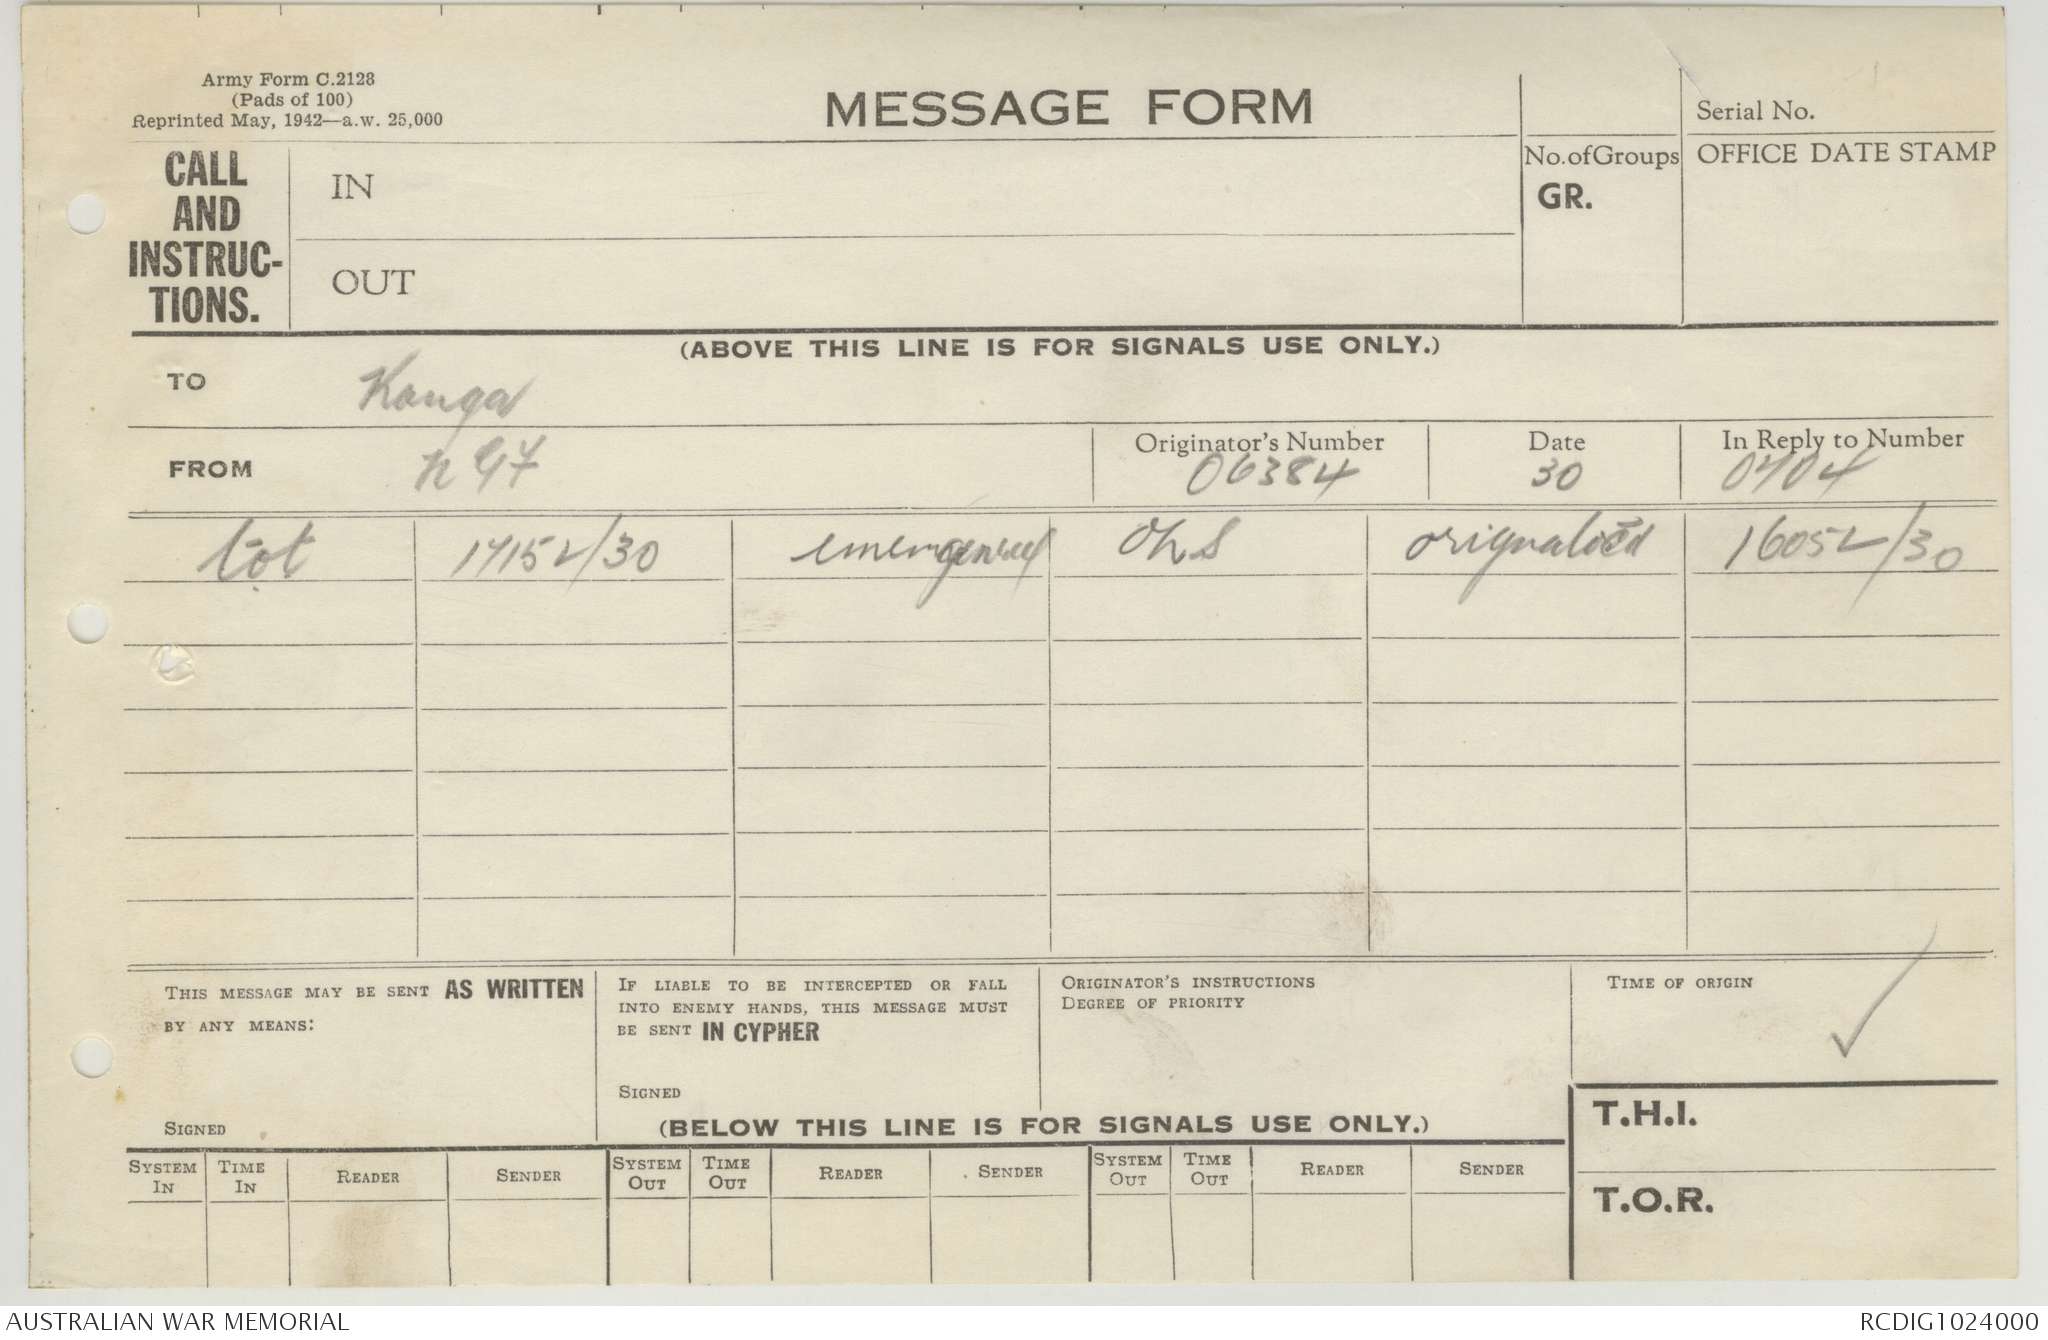 Army Form C.2128
(Pads of 100)
Reprinted May, 1942—a.w. 25,000
MESSAGE FORM
Serial No.
CALL
AND
INSTRUC-
TIONS.
IN
OUT
No. of Groups
GR.
OFFICE DATE STAMP
(ABOVE THIS LINE IS FOR SIGNALS USE ONLY.)
TO Kanga
FROM
Originator's Number
06384
Date
30
In Reply to Number
0404
tot
THIS MESSAGE MAY BE SENT AS WRITTEN
BY ANY MEANS:
SIGNED
IF LIABLE TO BE INTERCEPTED OR FALL
INTO ENEMY HANDS, THIS MESSAGE MUST
BE SENT IN CYPHER
SIGNED
ORIGINATOR'S INSTRUCTIONS
DEGREE OF PRIORITY
TIME OF ORIGIN
(BELOW THIS LINE IS FOR SIGNALS USE ONLY.)
T.H.I.
T.O.R.
SYSTEM IN TIME IN READER SENDER SYSTEM OUT TIME OUT READER SENDER SYSTEM OUT TIME OUT READER SENDER
AUSTRALIAN WAR MEMORIAL
RCDIG1024000